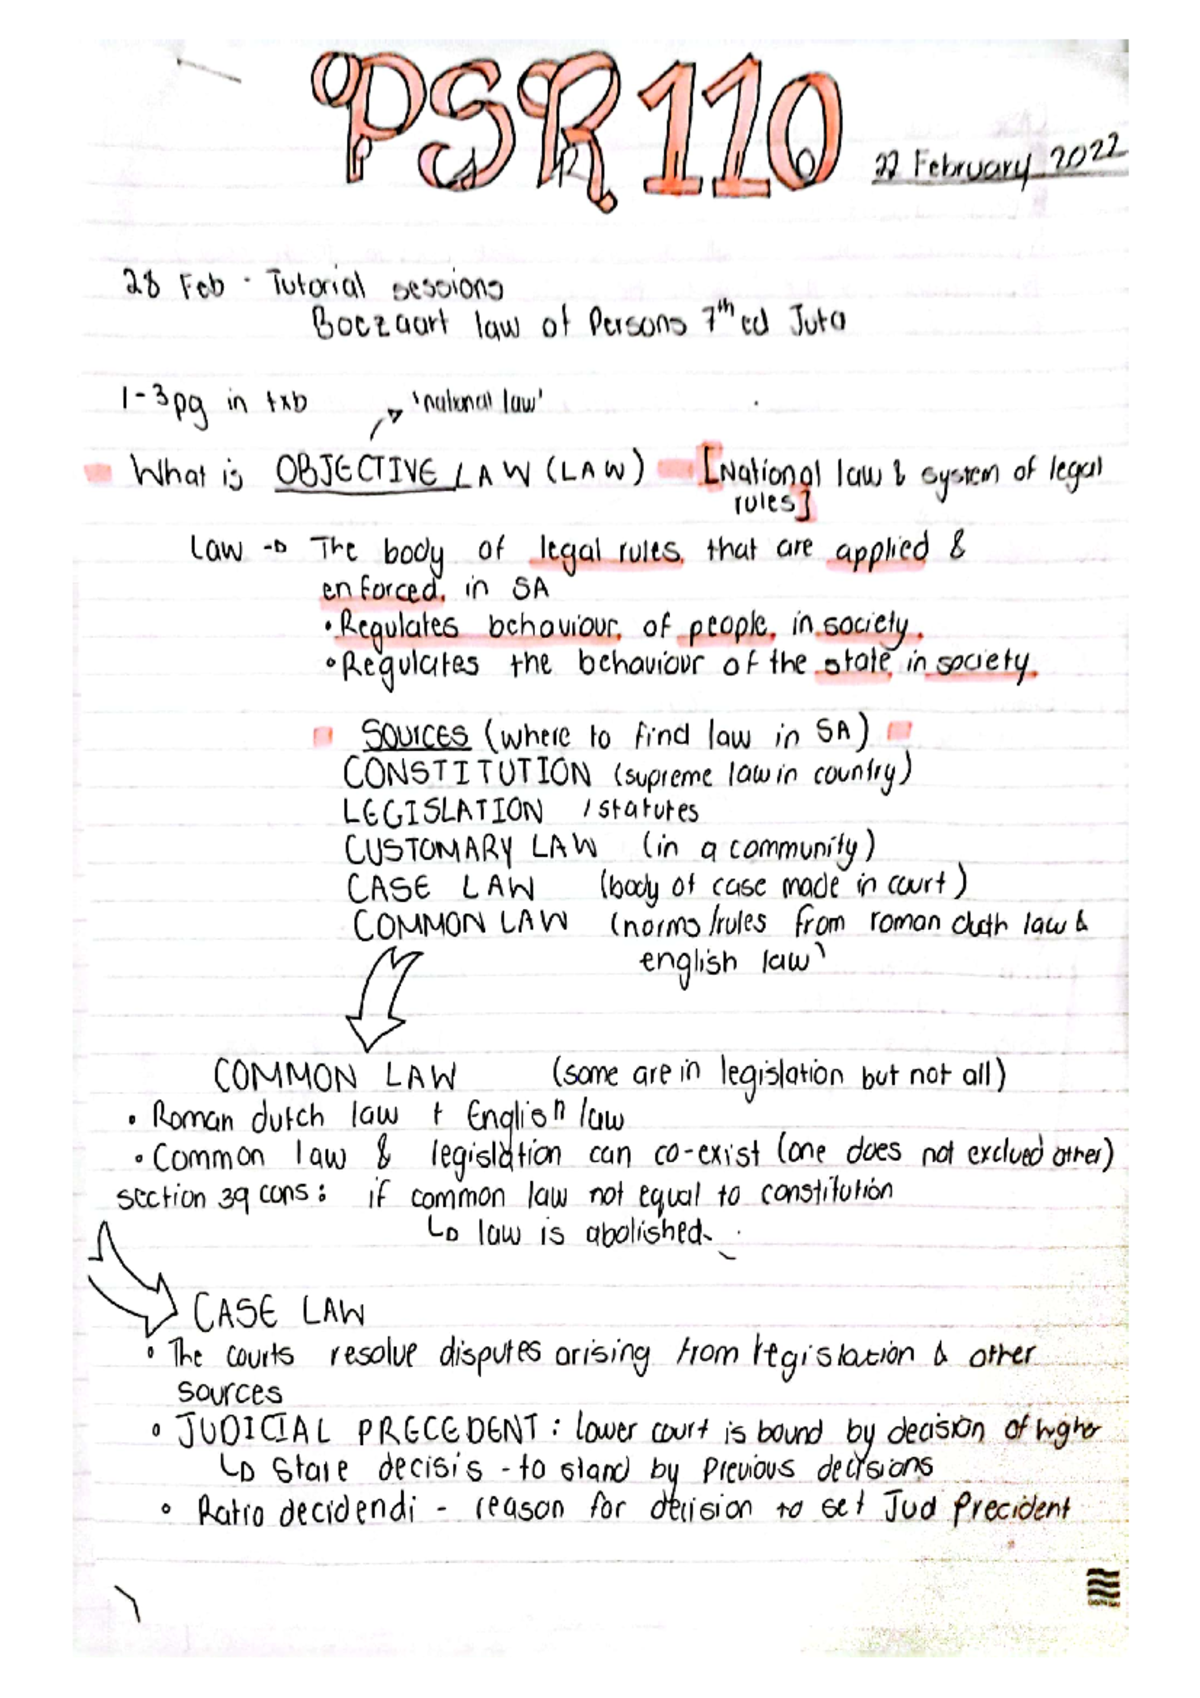 PSR 110
22 February 2022
28 Feb · Tutorial sessions
Boezaart law of Persons 7th ed Juta
1-3pg in txb
'national law'
What is OBJECTIVE LAW (LAW) [National law & system of legal
rules]
Law → The body of legal rules, that are applied &
enforced, in SA
• Regulates behaviour, of people, in society.
• Regulates the behaviour of the state, in society.
SOURCES (where to find law in SA)
CONSTITUTION (supreme law in country)
LEGISLATION / statutes
CUSTOMARY LAW (in a community)
CASE LAW (body of case made in court)
COMMON LAW (norms/rules from roman duth law &
english law)
COMMON LAW (some are in legislation but not all)
• Roman dutch law + English law
• Common law & legislation can co-exist (one does not exclued other)
section 39 cons: if common law not equal to constitution
↳ law is abolished.
CASE LAW
• The courts resolve disputes arising from legislation & other
sources
• JUDICIAL PRECEDENT: lower court is bound by decision of higher
↳ Stare decisis - to stand by Previous decisions
• Ratio decidendi - reason for decision to set Jud Precident